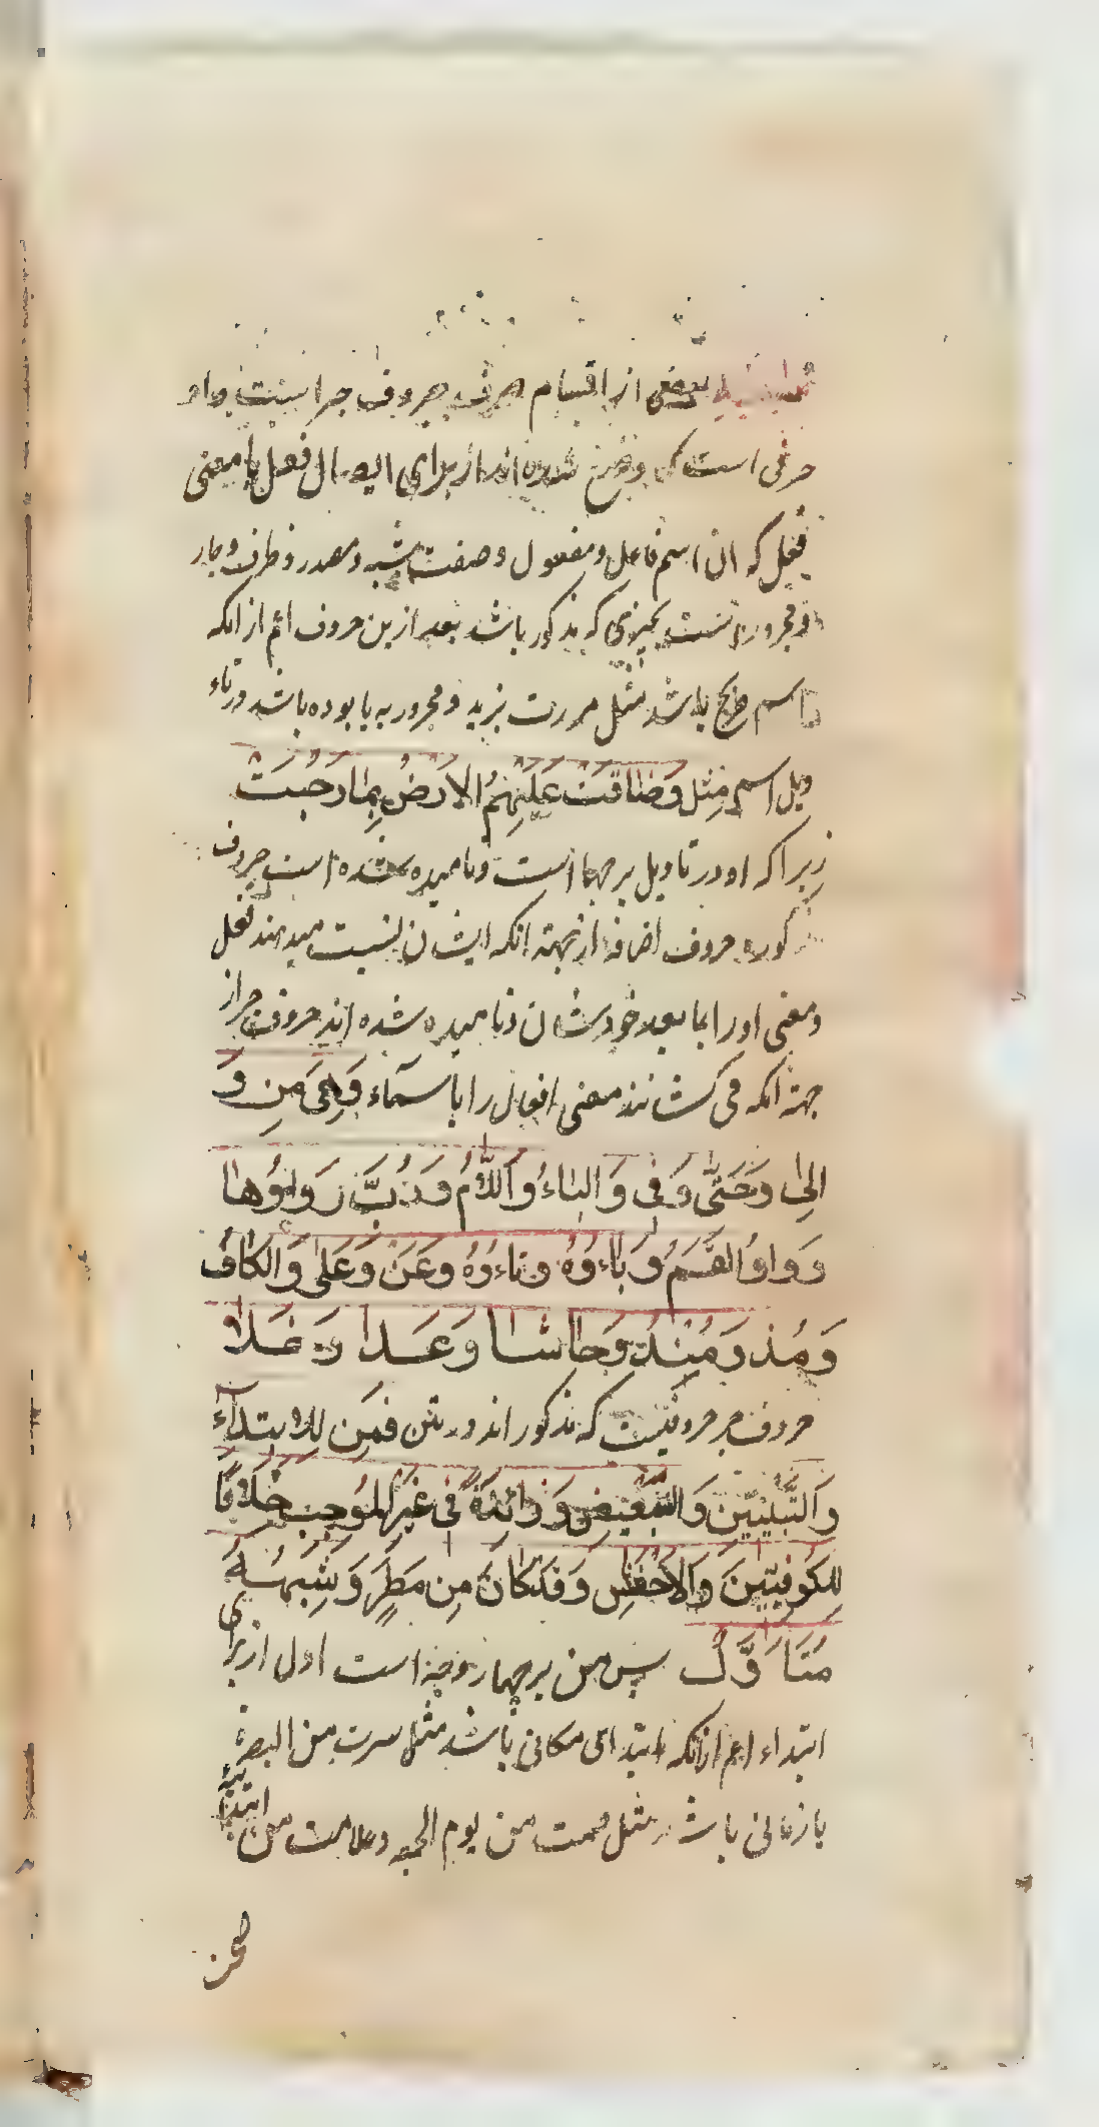 بعضی از اقسام حرف حروف جر است واو
حرفی است که وضع شده اند از برای ایصال فعل یا معنی
فعل که ان اسم فاعل و مفعول و صفت مشبه و مصدر و ظرف و جار
و مجرور است بچیزی که مذکور باشد بعد ازین حروف اعم از انکه
اسم صریح باشد مثل مررت بزید و مجرور به با بوده باشد در تاء
ویل اسم مثل وَضَاقَتْ عَلَیْهِمُ الاَرْضُ بِمَا رَحُبَتْ
زیرا که او در تاویل برحبها است و نامیده شده است حروف
کوره حروف اضافه از جهة انکه ایشان نسبت میدهند فعل
و معنی او را بما بعد خودشان و نامیده شده اند حروف جر از
جهة انکه می کشانند معنی افعال را با سمآء وَهِیَ مِن وَ
اِلیٰ وَحَتّٰی وَفی وَالبٰاءُ وَاللّٰامُ وَرُبَّ وَ وٰاوُهٰا
وَوٰاوُ القَسَمُ وَبٰاءُهُ وَتٰاءُهُ وَعَنْ وَعَلیٰ وَالکٰافُ
وَمُذ وَمُنْذُ وَحٰاشٰا وَعَدٰا وَخَلٰا
حروف جر حروفیست که مذکور اند در متن فَمِن لِلابتِدآء
وَالتَّبْیینِ وَالتَّبْعیضِ وَزٰائِدَةً فی غَیْرِ المُوجِبِ خِلٰافًا
لِلکُوفِیّینَ وَالاَخْفَشِ وَقَدْ کٰانَ مِن مَطَرٍ وَشِبْهُهُ
مُتَاَوَّلٌ پس من بر چهار وجه است اول از برای
ابتداء اعم از انکه ابتدای مکانی باشد مثل سرت من البصرة
یا زمانی باشد مثل صمت من یوم الجمعه و علامت من ابتدائیة